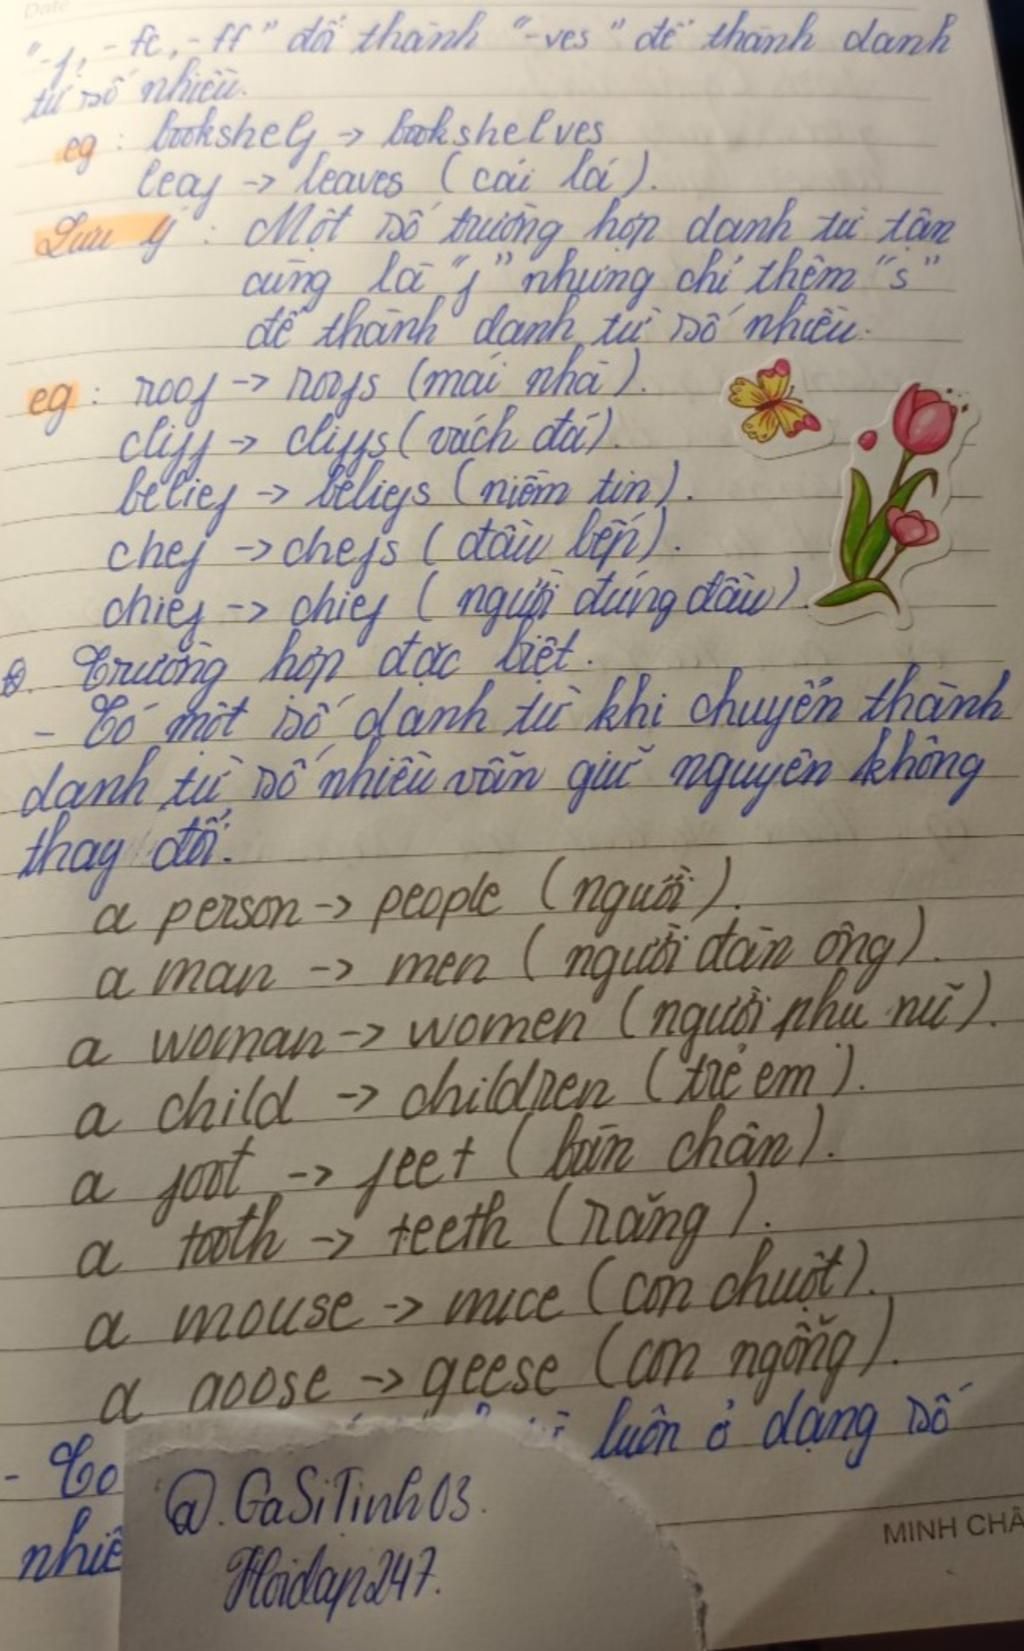 Date
"-f, -fe, -ff" đổi thành "-ves" để thành danh
từ số nhiều.
eg : bookshelf -> bookshelves
leaf -> leaves (cái lá).
Lưu ý : Một số trường hợp danh từ tận
cùng là "f" nhưng chỉ thêm "s"
để thành danh từ số nhiều.
eg : roof -> roofs (mái nhà).
cliff -> cliffs (vách đá).
belief -> beliefs (niềm tin).
chef -> chefs (đầu bếp).
chief -> chief (người đứng đầu).
Trường hợp đặc biệt.
- Có một số danh từ khi chuyển thành
danh từ số nhiều vẫn giữ nguyên không
thay đổi.
a person -> people (người).
a man -> men (người đàn ông).
a woman -> women (người phụ nữ).
a child -> children (trẻ em).
a foot -> feet (bàn chân).
a tooth -> teeth (răng).
a mouse -> mice (con chuột).
a goose -> geese (con ngỗng).
- Có luôn ở dạng số
nhiề
@.GaSiTinh03.
Hoidap247.
MINH CHÂ